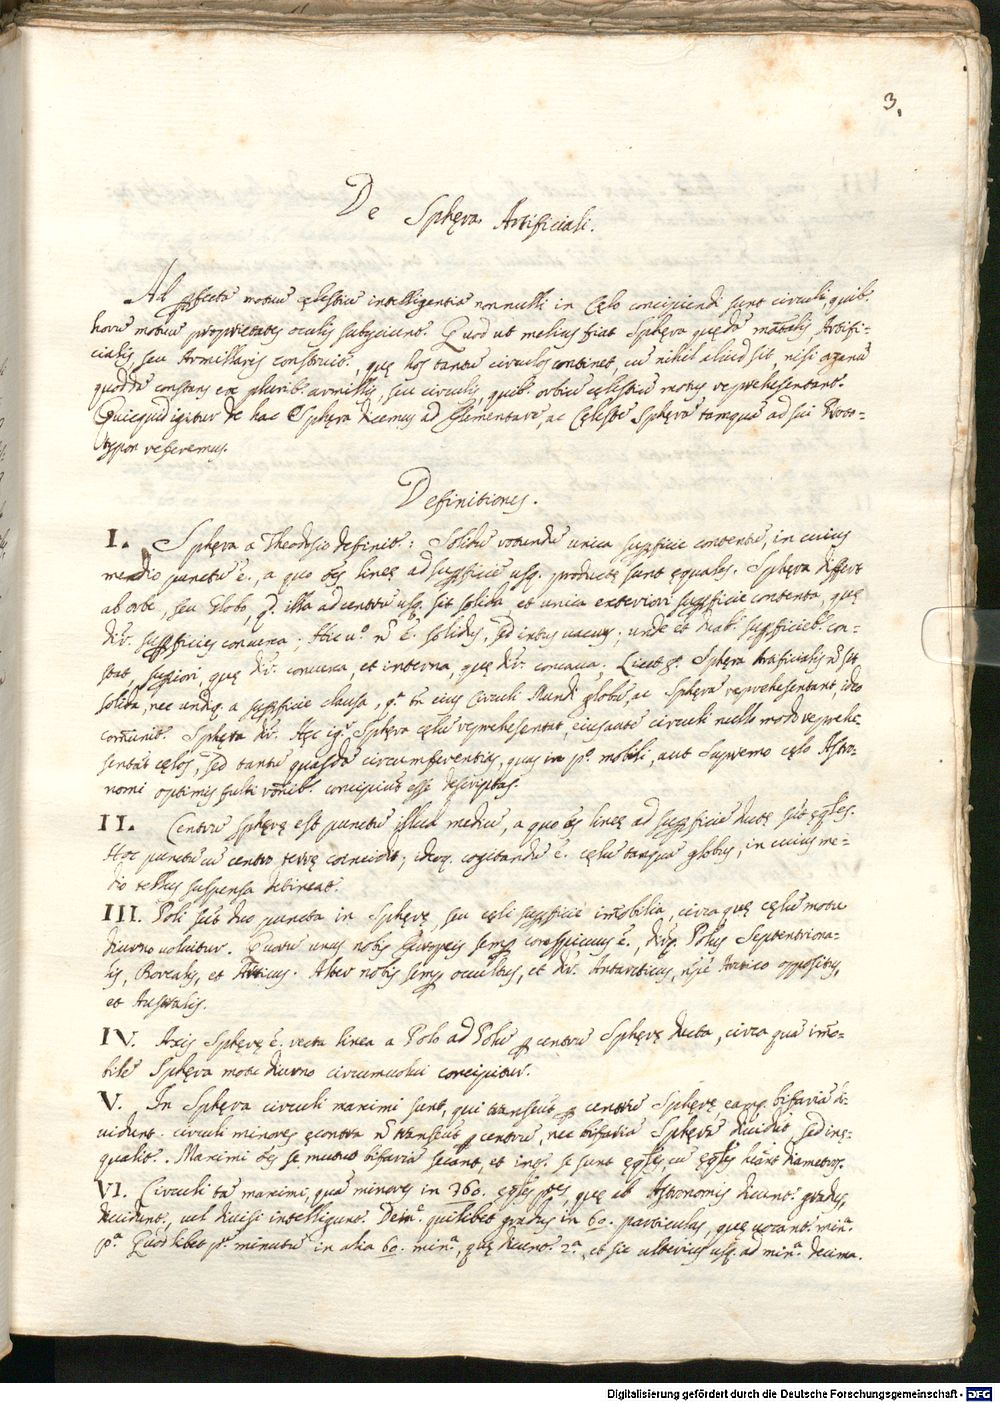 3.
De Sphęra Artificiali.
Ad ꝑfectā motuū cęlestiū intelligentiā nonnulli in Cęlo concipiendi sunt circuli, quib.
horū motuū proprietates oculis subijciunt. Quod ut melius fiat Sphęra quędā mālis, Artifi-
cialis seu Armillaris construit., quę hos tantū circulos continet, cū nihil aliud sit, nisi
quoddā constans ex plurib. armillis, seu circulis, quib. orbiū cęlestiū motus reprehesentant.
Quicquid igitur de hac Sphęra dicemus ad Elementarē, ac Cęlestē Sphęrā tamquā ad sui Proto-
typon referemus.
Definitiones.
I. Sphęra a Theodosio definit.: Solidū rotundū unica suꝑficie contentū, in cuius
medio punctū ē., a quo oēs lineę ad suꝑficiē usq. productę sunt ęquales. Sphęra differt
ab orbe, seu Globo, q. illa ad centrū usq. sit solida, et unica exteriori suꝑficie contenta, quę
dir. suꝑficies convexa; Hic uº. n̄ ē. solidus, sed intus vacuus; unde et duab. suꝑficieb. con-
stat, suꝑiori, quę dir. convexa, et interna, quę dir. concava. Licet gº. Sphęra Artificialis n̄ sit
solida, nec undiq. a suꝑficie clausa, qª. tn̄ eius Circuli Mundi globū, ac Sphęrā reprehesentant, ideo
com̄unit. Sphęra dir. Hęc igr. Sphęra cęlū reprehesentat, eius autē circuli nullo modo reprehe-
sentāt cęlos, sed tantū quasdā circumferentias, quas in pº. mobili, aut supremo cęlo Astro-
nomi optimis fulti rōnib. concipiūt esse descriptas.
II. Centrū Sphęrę est punctū illud mediū, a quo oēs lineę ad suꝑficiē ductę sūt ęqles.
Hoc punctū cū centro terrę coincidit; ideoq. cogitandū ē. cęlū tanquā globus, in cuius me-
dio tellus suspensa detineat.
III. Poli sūt duo puncta in Sphęrę, seu cęli suꝑficie im̄obilia, circa quę cęlū motu
diurno volvitur. Quorū unus nobis Europeis semꝑ conspicuus ē., dirq. Polus Septentriona-
lis, Borealis, et Arcticus. Alter nobis semꝑ occultus, et dir. Antarcticus, sive Arctico oppositus,
et Australis.
IV. Axis Sphęrę ē. recta linea a Polo ad Polū ꝑ centrū Sphęrę ducta, circa quā im̄o-
bilē Sphęra motu diurno circumvolvi concipitur.
V. In Sphęra circuli maximi sunt, qui transeūt ꝑ centrū Sphęrę, eamq. bifariā di-
vidunt. circuli minores ęcontra n̄ transeūt ꝑ centrū, nec bifariā Sphęrā dividūt sed inę-
qualit.. Maximi oēs se mutuo bifariā secānt, et inq. se sunt ęqles, cū ęqles hēant diametros.
VI. Circuli tā maximi, quā minores in 360. ęqles ptes, quę ab Astronomis dicunt. gradus,
dividunt., vel divisi intelligunt. Deinº. quilibet gradus in 60. particulas, quę vocant. minª.
pª. Quodlibet pº. minutū in alia 60. minª., quę dicunt. 2ª., et sic ulterius usq. ad minª. decima.
Digitalisierung gefördert durch die Deutsche Forschungsgemeinschaft - DFG